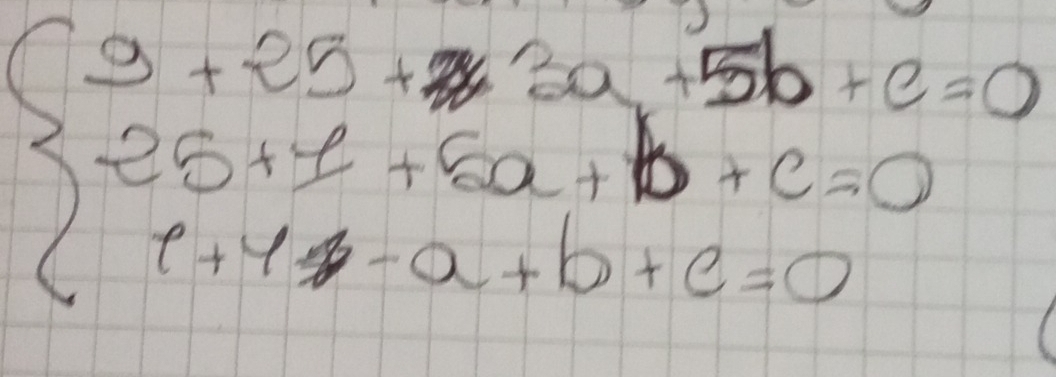 9 + 25 + 3a + 5b + c = 0
25 + 1 + 5a + b + c = 0
1 + 1 - a + b + c = 0